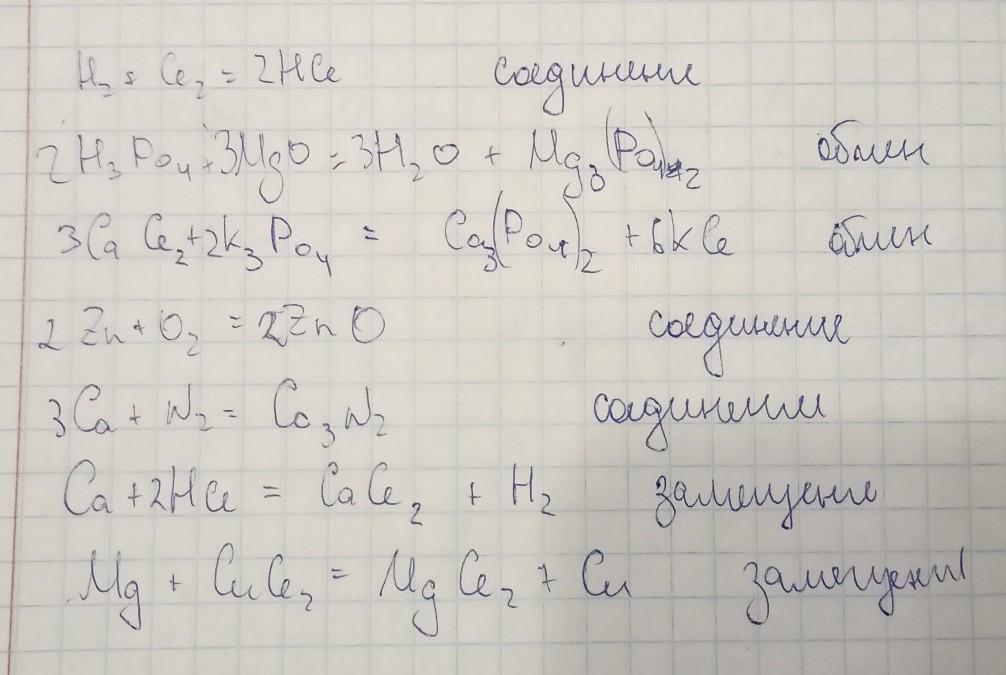 H₂ + Cl₂ = 2HCl соединение
2H₃PO₄ + 3MgO = 3H₂O + Mg₃(PO₄)₂ обмен
3CaCl₂ + 2K₃PO₄ = Ca₃(PO₄)₂ + 6KCl обмен
2Zn + O₂ = 2ZnO соединение
3Ca + N₂ = Ca₃N₂ соединение
Ca + 2HCl = CaCl₂ + H₂ замещение
Mg + CuCl₂ = MgCl₂ + Cu замещение